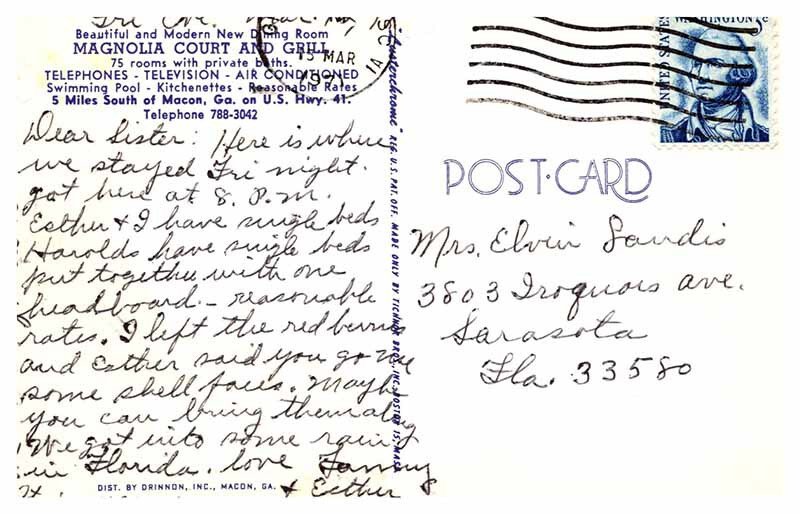 Fri Eve. Mar.
Beautiful and Modern New Dining Room
MAGNOLIA COURT AND GRILL
75 rooms with private baths.
TELEPHONES - TELEVISION - AIR CONDITIONED
Swimming Pool - Kitchenettes - Reasonable Rates
5 Miles South of Macon, Ga. on U.S. Hwy. 41.
Telephone 788-3042
Dear Sister: Here is where
we stayed Fri night.
got here at 8. P.M.
Esther & I have single beds
Harolds have single beds
put together with one
headboard - reasonable
rates. I left the red berries
and Esther said you got me
some shell faces. Maybe
you can bring them along
We got into some rain
in Florida. love Fanny
& Esther
DIST. BY DRINNON, INC., MACON, GA.
REG. U.S. PAT. OFF. MADE ONLY BY TICHNOR BROS., INC. BOSTON 15, MASS.
15 MAR
1971
UNITED STATES
WASHINGTON 5c
POST-CARD
Mrs. Elvin Sandis
3803 Iroquois ave.
Sarasota
Fla. 33580